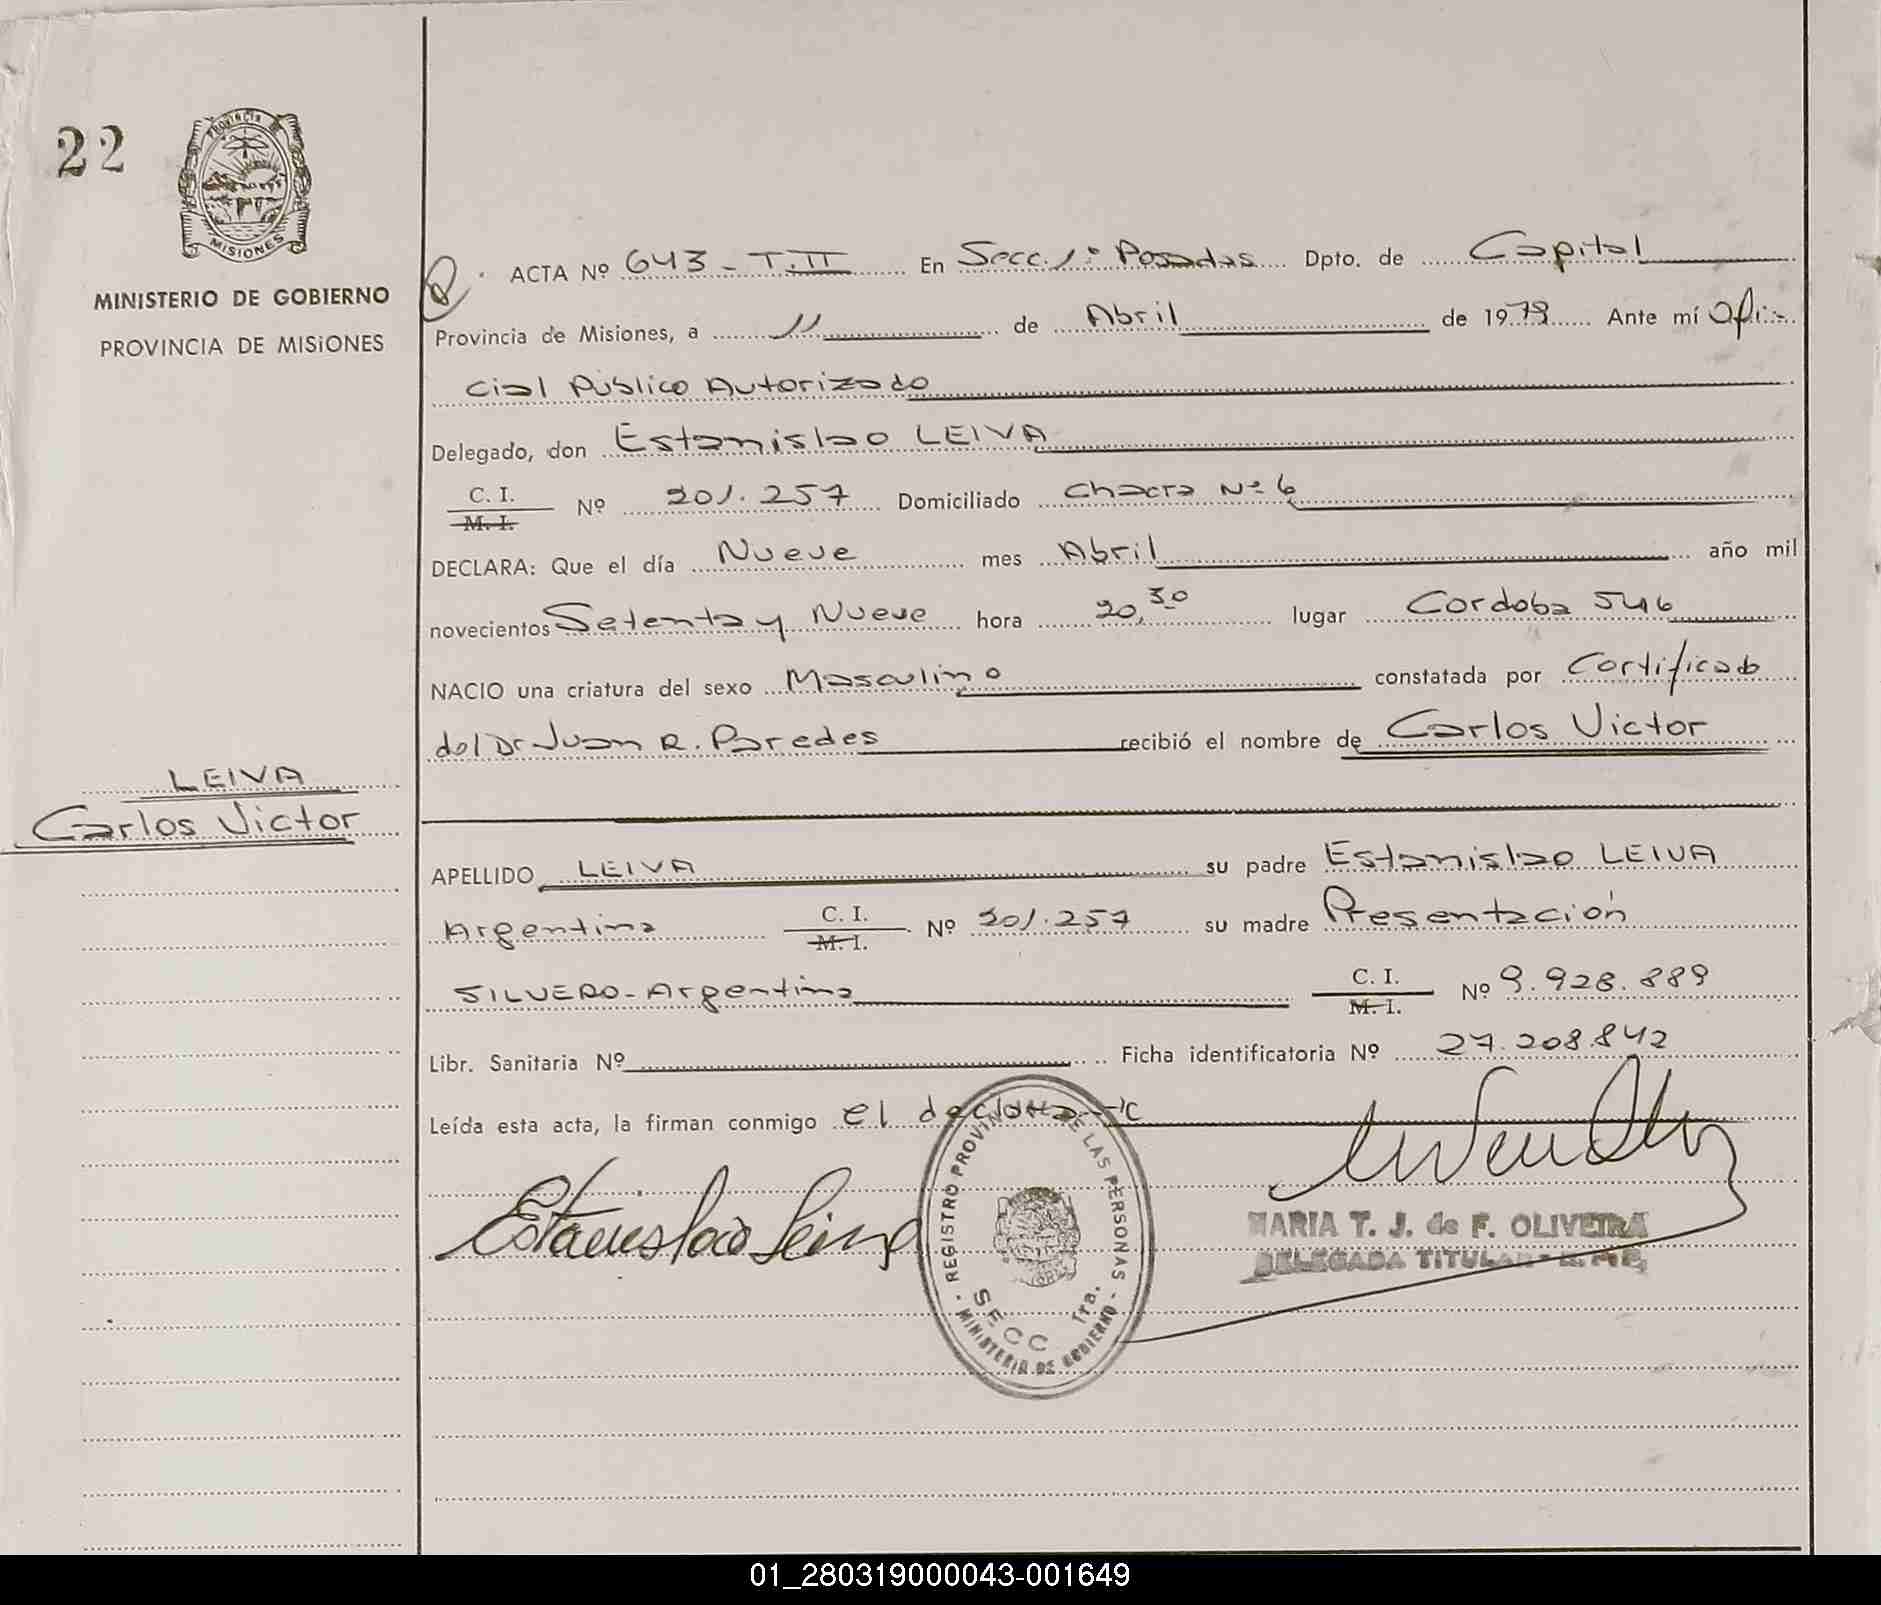 22
PROVINCIA DE
MISIONES
MINISTERIO DE GOBIERNO
PROVINCIA DE MISIONES
LEIVA
Carlos Victor
ACTA Nº 643 - T. II En Secc. 1ª Posadas Dpto. de Capital
Provincia de Misiones, a 11 de Abril de 1979 Ante mí Ofi-
cial Público Autorizado
Delegado, don Estanislao LEIVA
C. I. M. I. Nº 201.257 Domiciliado Chacra Nº 6
DECLARA: Que el día Nueve mes Abril año mil
novecientos Setenta y Nueve hora 20,30 lugar Cordoba 546
NACIO una criatura del sexo Masculino constatada por Certificado
del Dr Juan R. Paredes recibió el nombre de Carlos Victor
APELLIDO LEIVA su padre Estanislao LEIVA
Argentina C. I. M. I. Nº 201.257 su madre Presentación
SILVERO - Argentina C. I. M. I. Nº 9.928.889
Libr. Sanitaria Nº Ficha identificatoria Nº 27.208.842
Leída esta acta, la firman conmigo el declarante
Estanislao Leiva
REGISTRO PROVINCIAL DE LAS PERSONAS
SECC 1ra.
- MINISTERIO DE GOBIERNO -
MARIA T. J. de F. OLIVEIRA
DELEGADA TITULAR R. P. P.
01_280319000043-001649